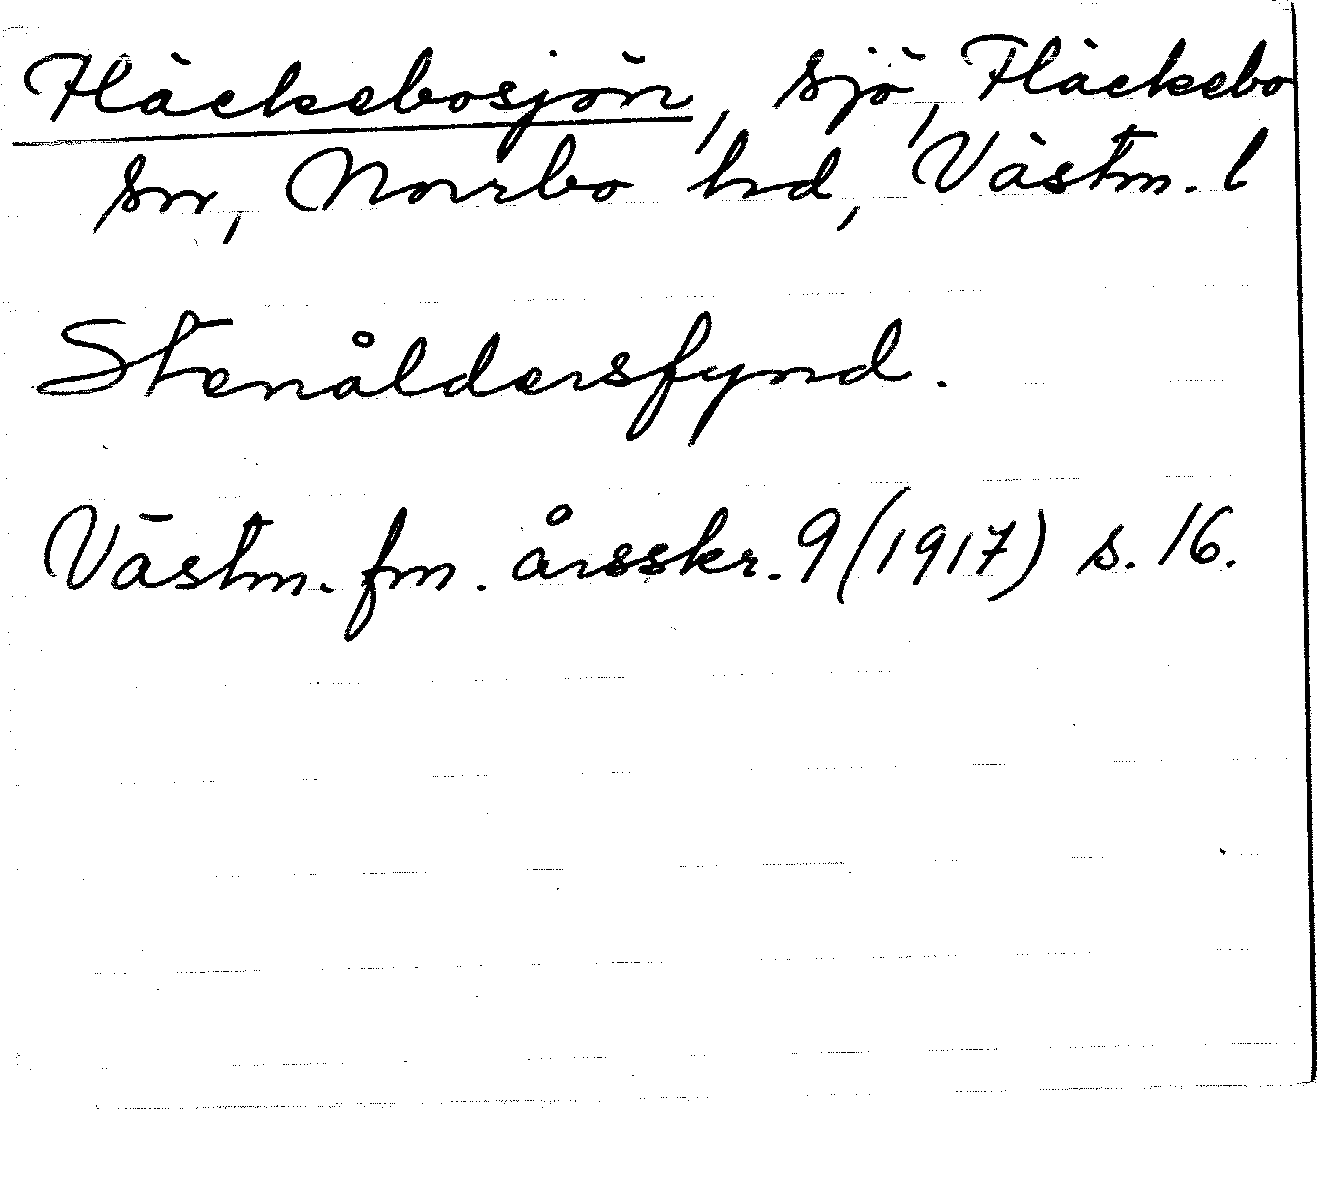 Fläckebosjön, sjö, Fläckebo
sn, Norrbo hd, Västm. l
Stenåldersfynd.
Västm. fm. årsskr. 9 (1917) s. 16.